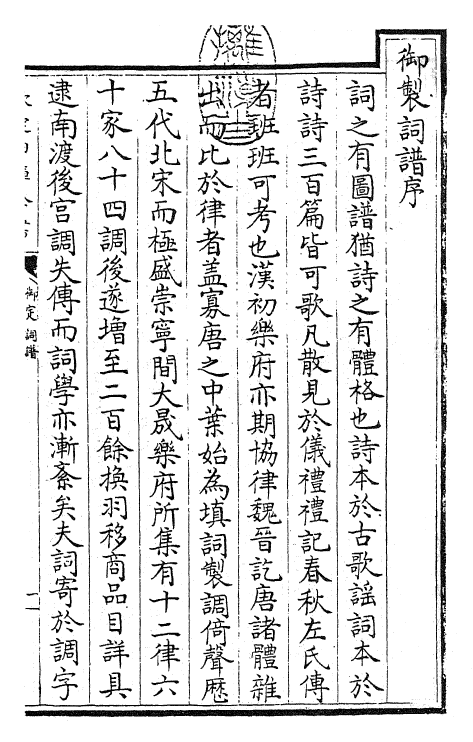 御製詞譜序
詞之有圖譜猶詩之有體格也詩本於古歌謡詞本於
詩詩三百篇皆可歌凡散見於儀禮禮記春秋左氏傳
者班班可考也漢初樂府亦期協律魏晉訖唐諸體雜
出而比於律者盖寡唐之中葉始為填詞製調倚聲歴
五代北宋而極盛崇寧間大晟樂府所集有十二律六
十家八十四調後遂增至二百餘換羽移商品目詳具
逮南渡後宫調失傳而詞學亦漸紊矣夫詞寄於調字
御定詞譜
一